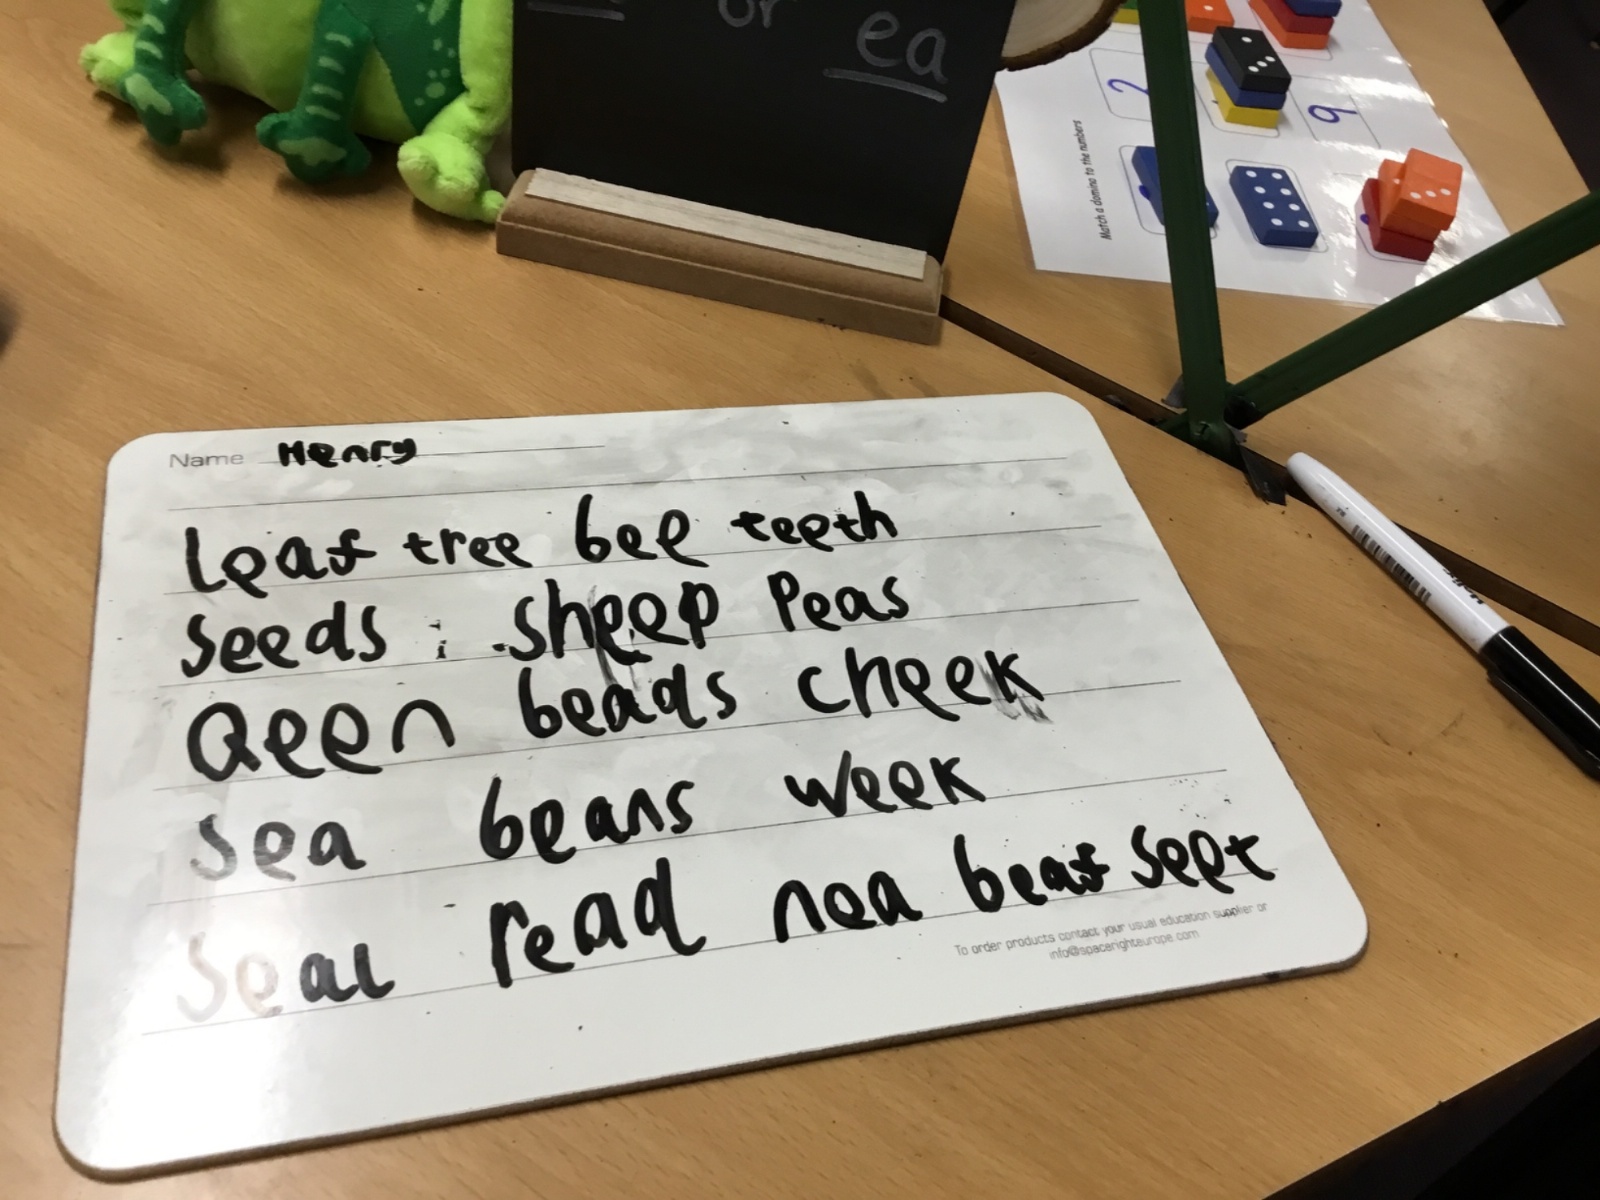 or ea
2
9
Match a domino to the numbers
Name Henry
Leaf tree bee teeth
Seeds sheep Peas
Qeen beads cheek
Sea beans week
Seal read nea beaf seet
To order products contact your usual education supplier or
info@spacerighteurope.com